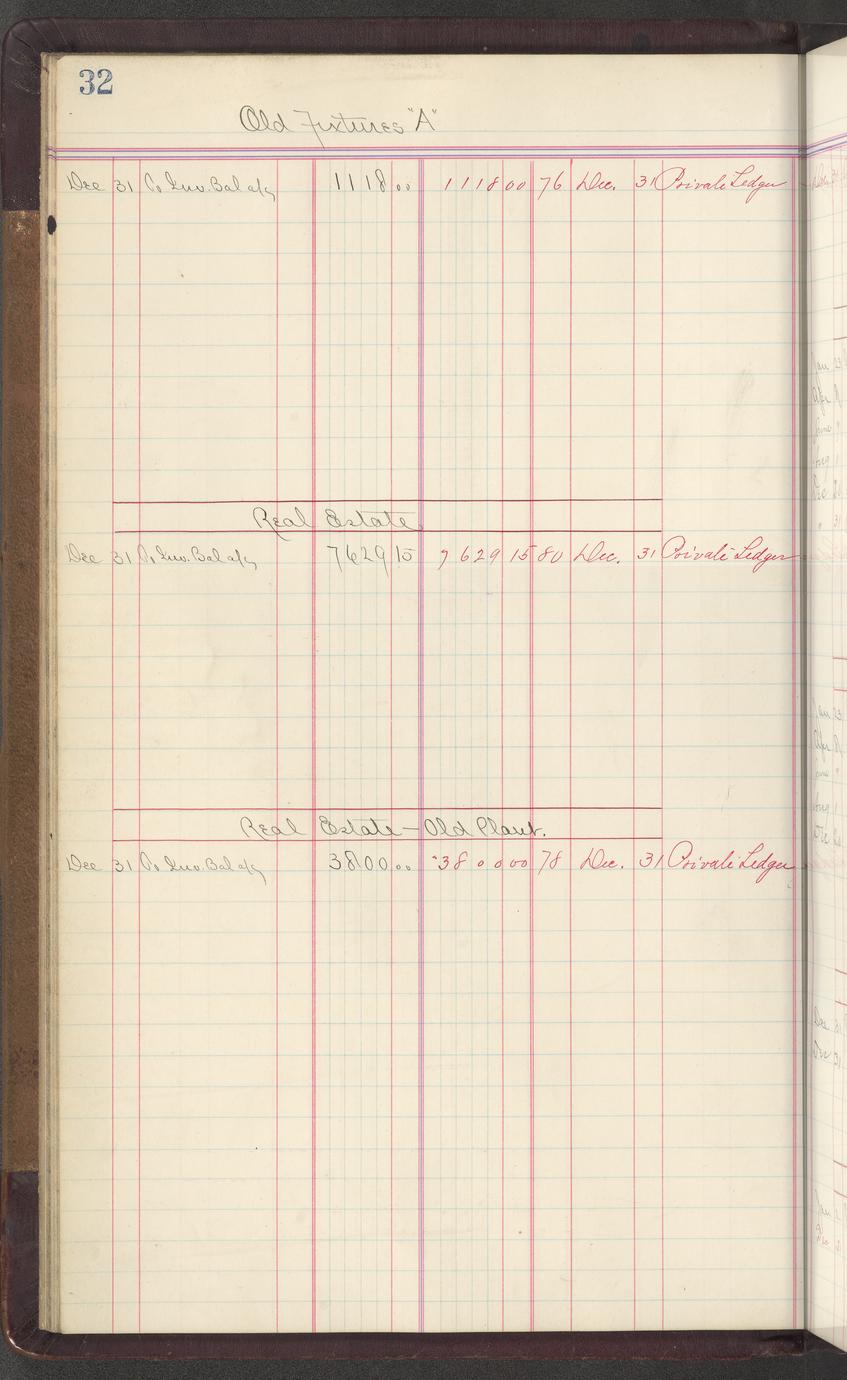 32
Old Fixtures "A"
Dec 31 Inv. Bal a/c 1118 00 1118 00 76 Dec. 31 Private Ledger
Real Estate
Dec 31 Inv. Bal a/c 7629 15 7629 15 80 Dec. 31 Private Ledger
Real Estate - Old Plant.
Dec 31 Inv. Bal a/c 3800 00 3800 00 78 Dec. 31 Private Ledger